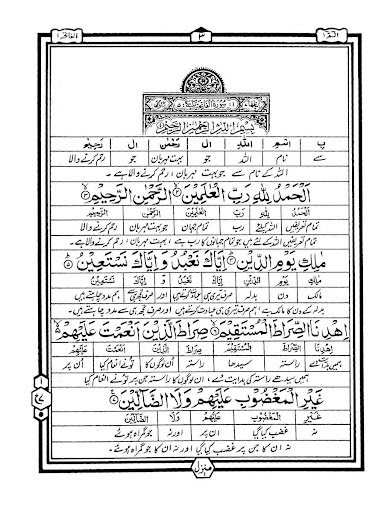 الفاتحة ١
٣
بسم الله الرحمن الرحيم
ب اسم الله ال رحمٰن ال رحيم
سے نام اللہ جو بہت مہربان جو رحم کرنے والا ہے
اللہ کے نام سے جو بہت مہربان ، رحم کرنے والا ہے ۔
اَلْحَمْدُ لِلّٰهِ رَبِّ الْعٰلَمِيْنَ ۝١ الرَّحْمٰنِ الرَّحِيْمِ ۝٢
اَلْحَمْدُ لِلّٰهِ رَبِّ الْعٰلَمِيْنَ الرَّحْمٰنِ الرَّحِيْمِ
تمام تعریفیں اللہ کیلئے رب تمام جہان جو بہت مہربان رحم کرنے والا
تمام تعریفیں اللہ کے لئے ہیں جو تمام جہانوں کا رب ہے ، بہت مہربان ، رحم کرنے والا ہے ۔
مٰلِكِ يَوْمِ الدِّيْنِ ۝٣ اِيَّاكَ نَعْبُدُ وَ اِيَّاكَ نَسْتَعِيْنُ ۝٤
مٰلِكِ يَوْمِ الدِّيْنِ اِيَّاكَ نَعْبُدُ وَ اِيَّاكَ نَسْتَعِيْنُ
مالک دن بدلہ صرف تیری ہی ہم عبادت کرتے ہیں اور صرف تجھ سے ہم مدد چاہتے ہیں
بدلہ کے دن کا مالک ہے ، ہم صرف تیری ہی عبادت کرتے ہیں اور صرف تجھ ہی سے مدد چاہتے ہیں ۔
اِهْدِنَا الصِّرَاطَ الْمُسْتَقِيْمَ ۝٥ صِرَاطَ الَّذِيْنَ اَنْعَمْتَ عَلَيْهِمْ ۝٦
اِهْدِنَا الصِّرَاطَ الْمُسْتَقِيْمَ صِرَاطَ الَّذِيْنَ اَنْعَمْتَ عَلَيْهِمْ
ہمیں ہدایت دے راستہ سیدھا راستہ اُن لوگوں کا تو نے انعام کیا اُن پر
ہمیں سیدھے راستہ کی ہدایت دے ، ان لوگوں کا راستہ جن پر تو نے انعام کیا
غَيْرِ الْمَغْضُوْبِ عَلَيْهِمْ وَلَا الضَّآلِّيْنَ ۝٧
غَيْرِ الْمَغْضُوْبِ عَلَيْهِمْ وَلَا الضَّآلِّيْنَ
نہ غضب کیا گیا ان پر اور نہ جو گمراہ ہوئے
نہ ان کا جن پر غضب کیا گیا اور نہ ان کا جو گمراہ ہوئے ۔
منزل